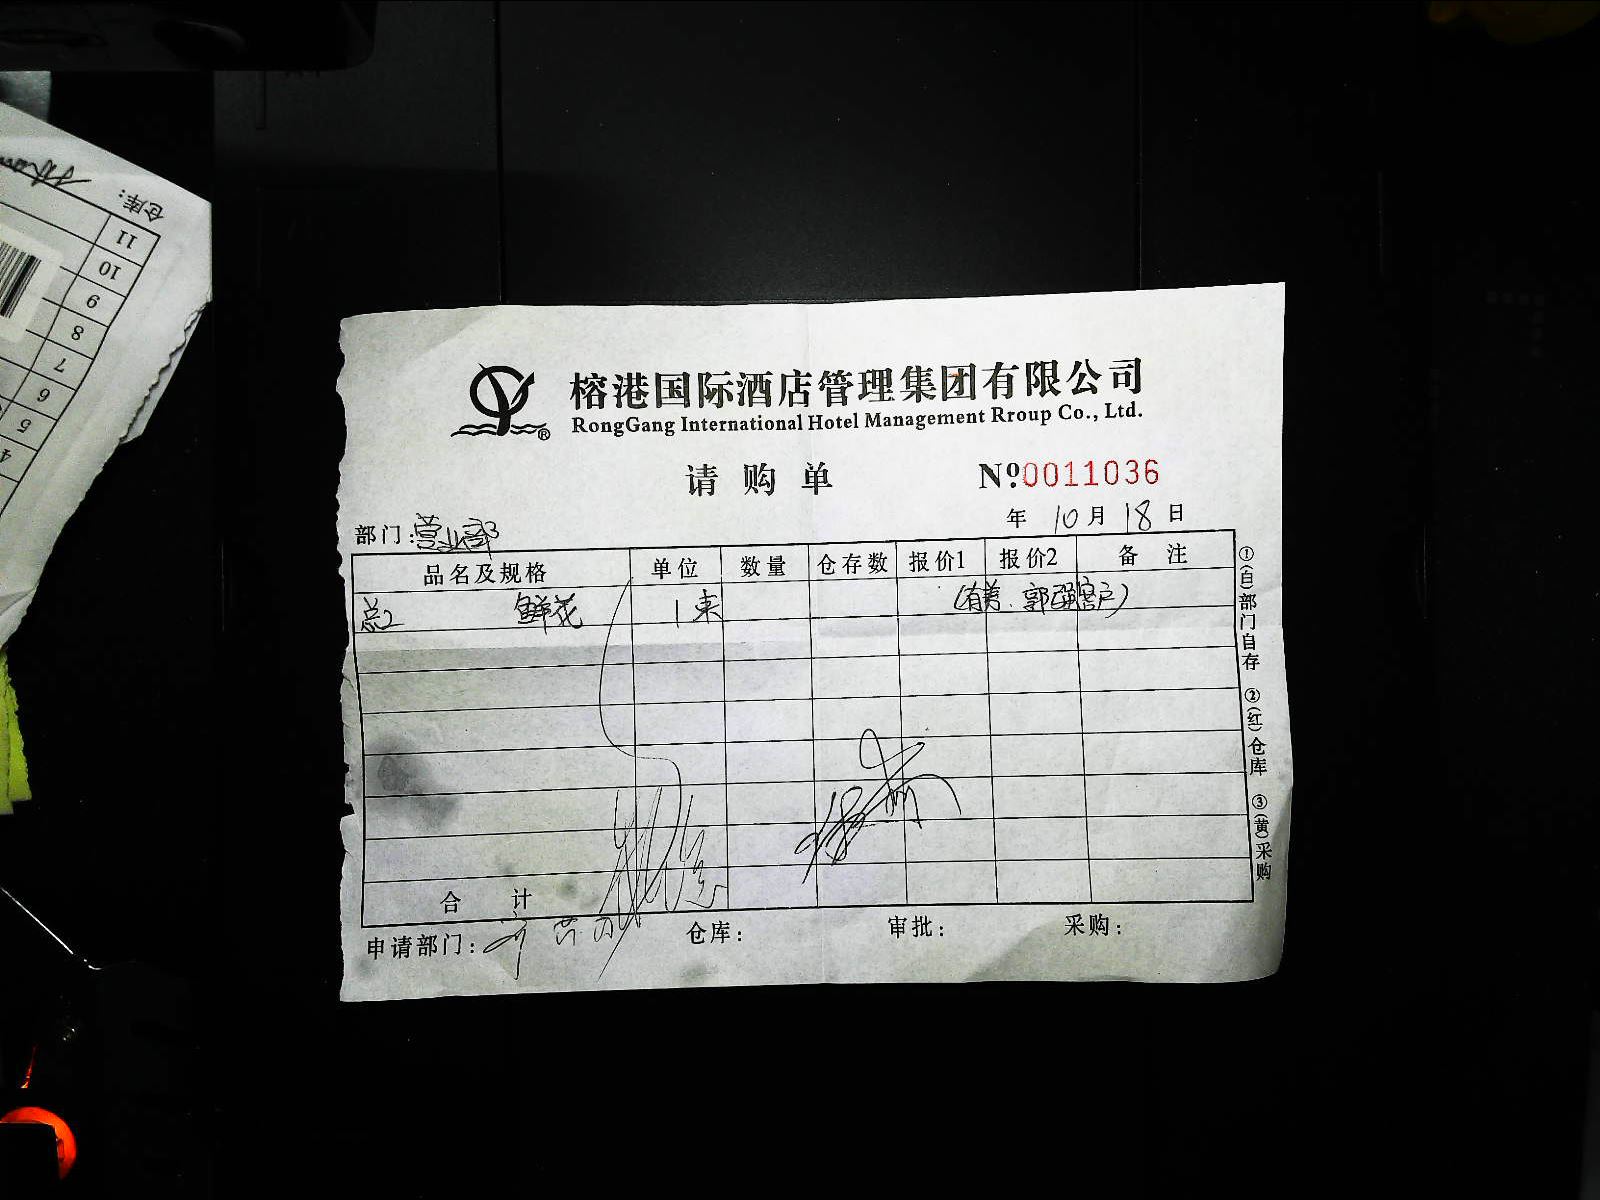 榕港国际酒店管理集团有限公司
RongGang International Hotel Management Rroup Co., Ltd.
请购单 Nº0011036
年 10月 18日
部门:营业部
品名及规格 单位 数量 仓存数 报价1 报价2 备 注
总2 鲜花 1束 (有美、郭强客户)
合 计
申请部门: 仓库: 审批: 采购:
①(白)部门自存 ②(红)仓库 ③(黄)采购
仓库:
11
10
9
8
7
6
5
4